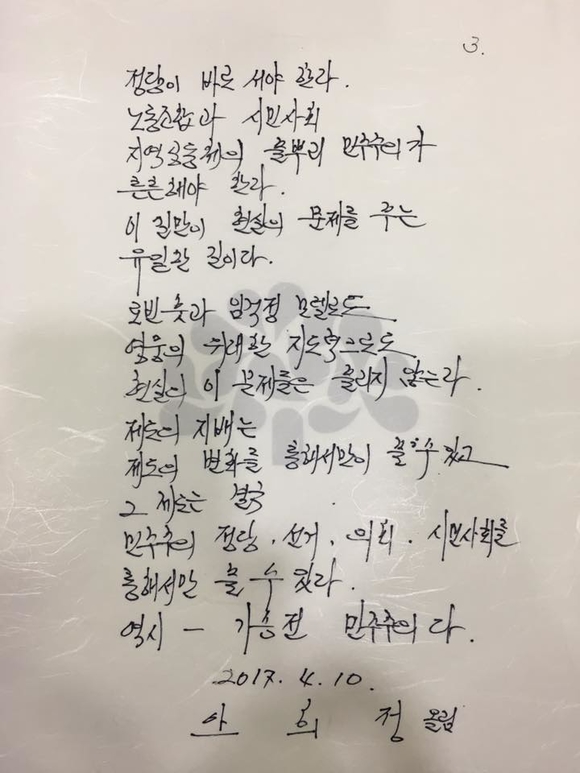 3.
정당이 바로 서야 한다.
노동조합과 시민사회
지역공동체의 풀뿌리 민주주의가
튼튼해야 한다.
이 길만이 현실의 문제를 푸는
유일한 길이다.
로빈 훗과 임꺽정 모델로도
영웅의 위대한 지도력으로도
현실의 이 문제들은 풀리지 않는다.
제도의 지배는
제도의 변화를 통해서만이 풀 수 있고
그 제도는 결국
민주주의 정당. 선거. 의회. 시민사회를
통해서만 풀 수 있다.
역시 - 가 민주주의다.
2017. 4. 10.
안 희 정 올림